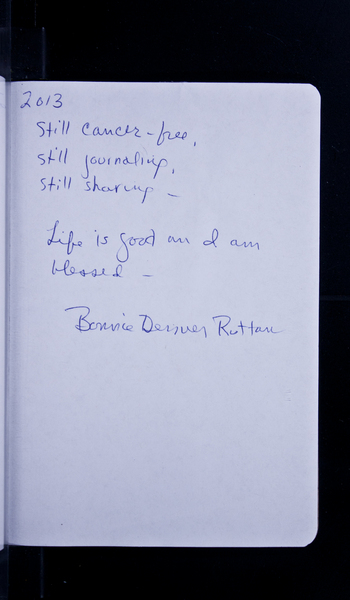 2013
Still cancer-free,
Still journaling,
Still sharing –
Life is good an I am
blessed –
Bonnie Denver Ruttan